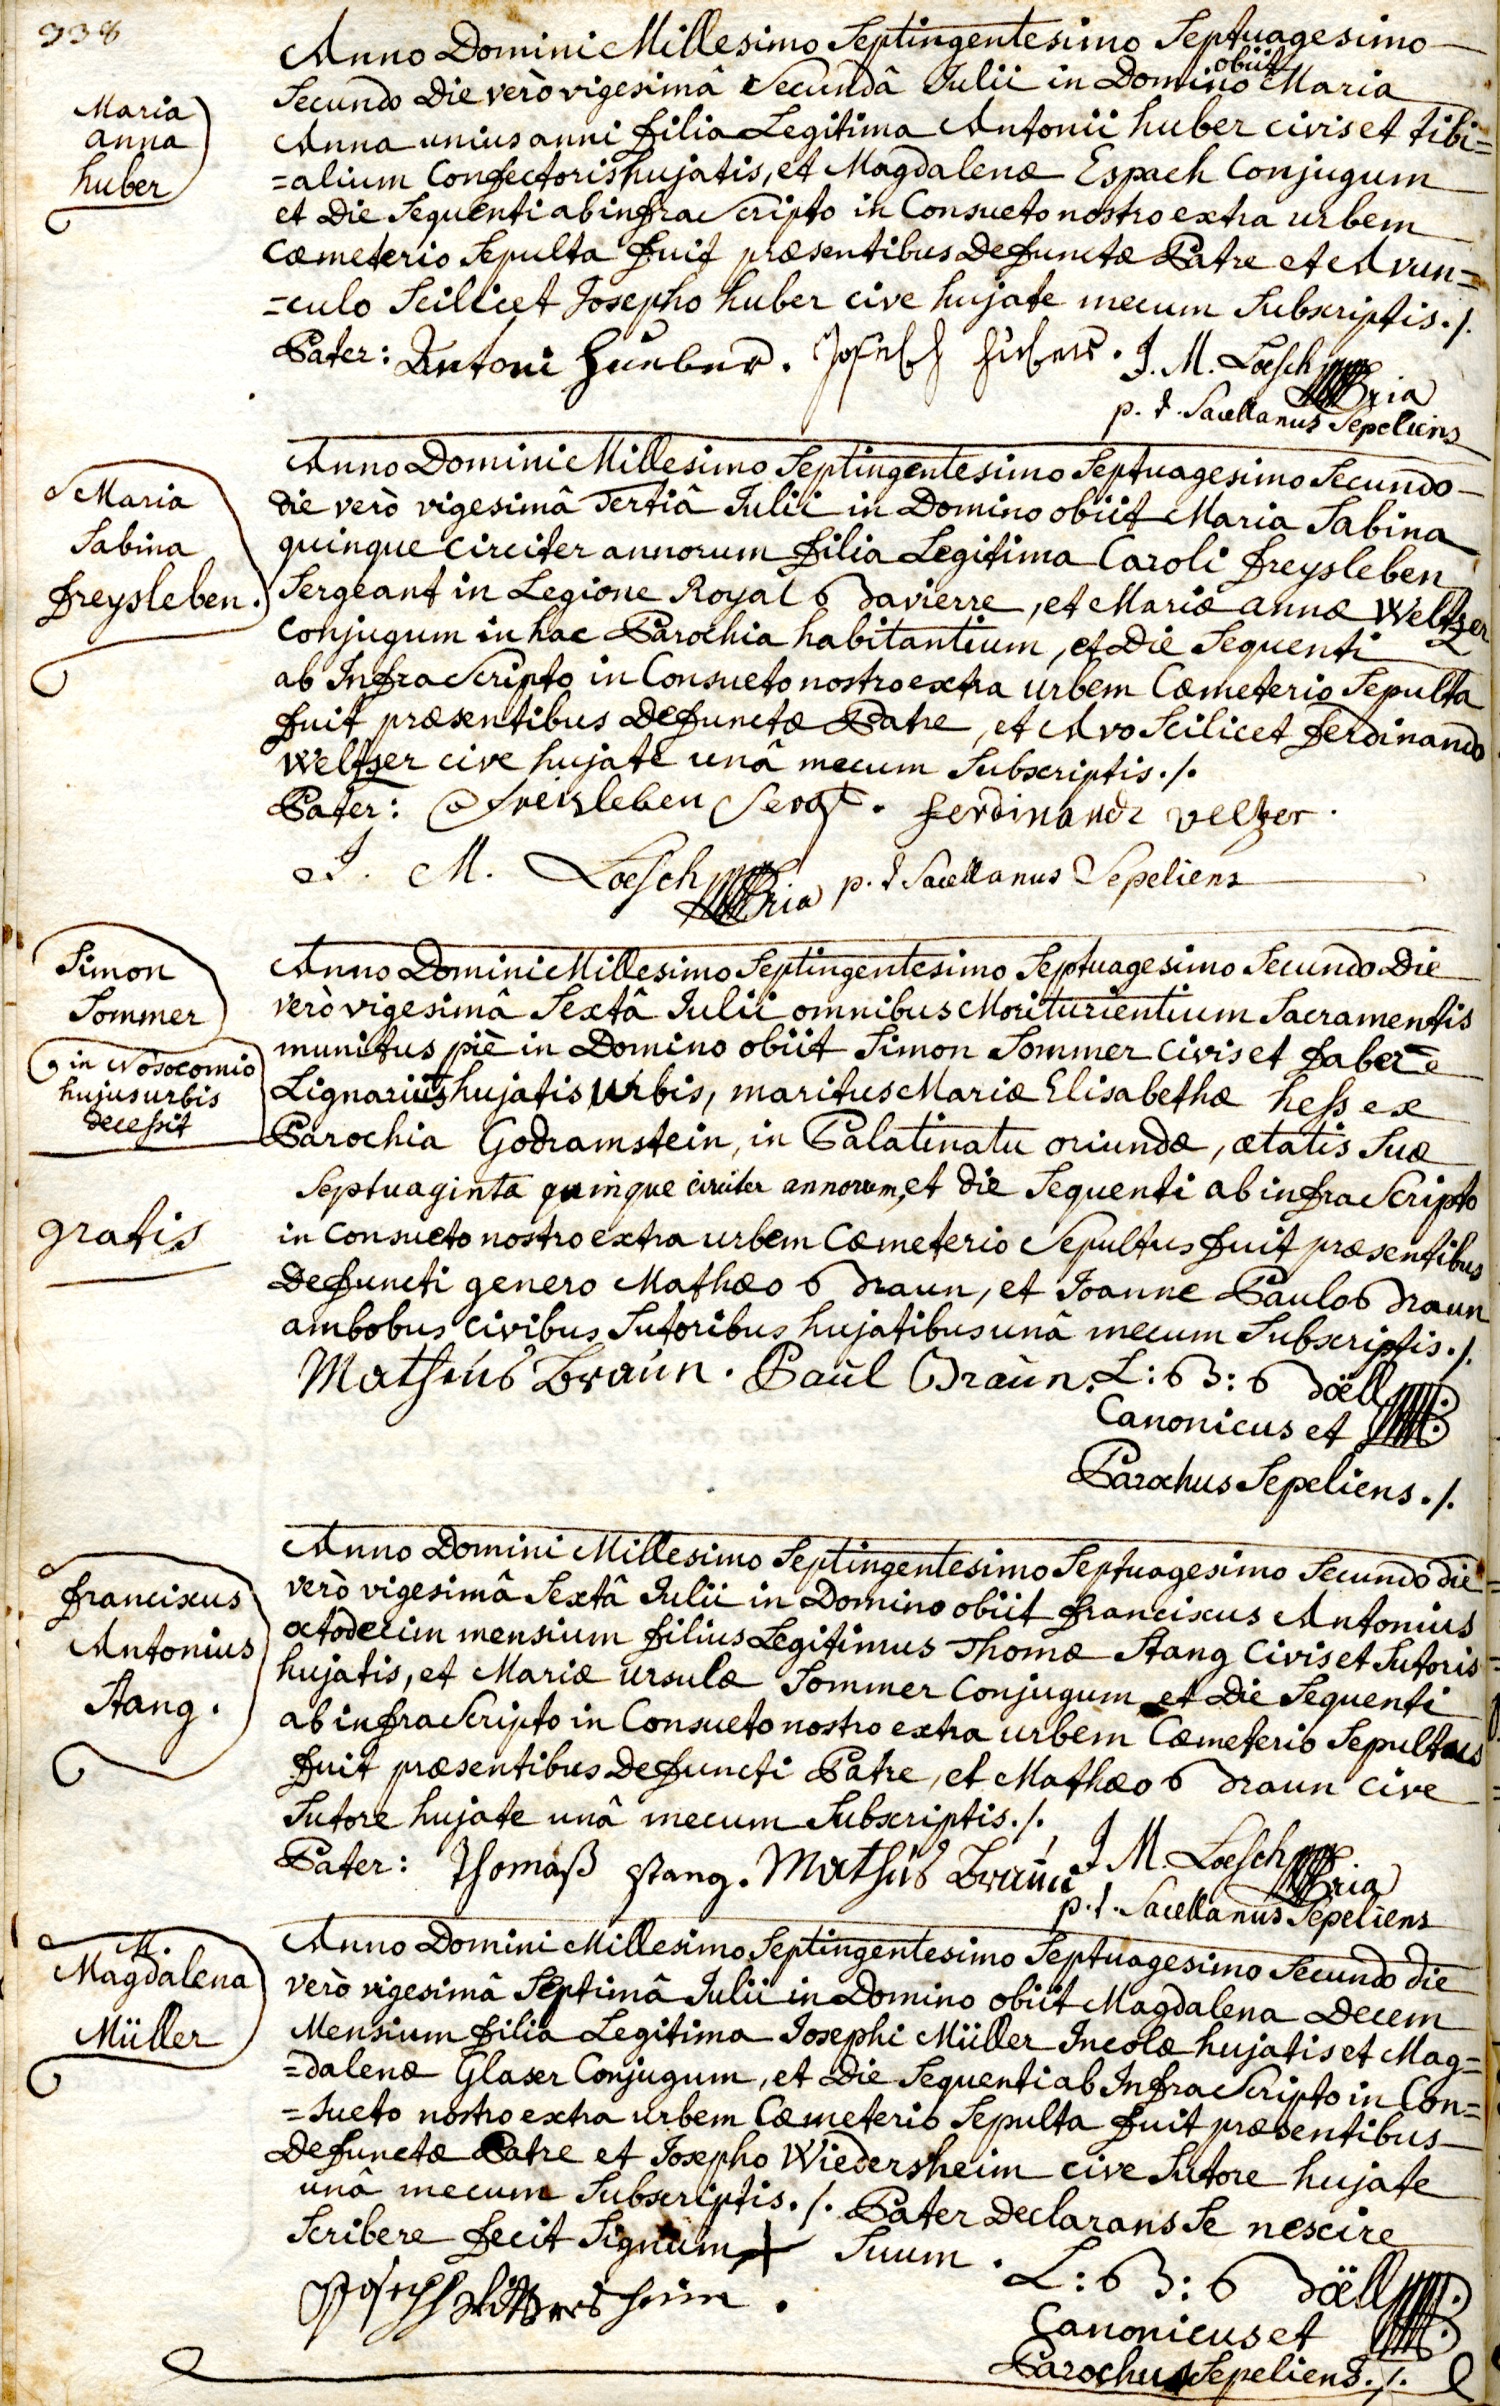 338
Maria
anna
huber
Anno Domini Millesimo Septingentesimo Septuagesimo
obiit
Secundo Die verò vigesimâ Secundâ Iulii in Domino Maria
Anna unius anni filia Legitima Antonii huber civis et tibi=
=alium Confectoris hujatis, et Magdalenæ Espach Conjugum
et Die Sequenti ab infra Scripto in Consueto nostro extra urbem
Cæmeterio Sepulta fuit præsentibus Defunctæ Patre et Avun=
=culo Scilicet Josepho huber cive hujate mecum Subscriptis./.
Pater: Antoni Hueber. Joseph Huber. J. M. Loesch mpria
p. t. Sacellanus Sepeliens
Maria
Sabina
freysleben.
Anno Domini Millesimo Septingentesimo Septuagesimo Secundo
die verò vigesimâ Tertiâ Iulii in Domino obiit Maria Sabina
quinque circiter annorum filia Legitima Caroli freysleben
Sergeant in Legione Royal Bavierre, et Mariæ annæ Weltzer
Conjugum in hac Parochia habitantium, et Die Sequenti
ab Infra Scripto in Consueto nostro extra urbem Cæmeterio Sepulta
fuit præsentibus Defunctæ Patre, et Avo Scilicet ferdinando
Weltzer cive hujate unâ mecum Subscriptis./.
Pater: Freisleben Sergt. ferdinandt velzer.
J. M. Loesch mpria p. t Sacellanus Sepeliens
Simon
Sommer
in Nosocomio
hujus urbis
decessit
gratis
Anno Domini Millesimo Septingentesimo Septuagesimo Secundo Die
verò vigesimâ Sextâ Iulii omnibus Moriturientium Sacramentis
munitus piè in Domino obiit Simon Sommer Civis et faber
Lignarius hujatis Urbis, maritus Mariæ Elisabethæ hess ex
Parochia Godramstein, in Palatinatu oriundæ, ætatis Suæ
Septuaginta quinque circiter annorum, et die Sequenti ab infra Scripto
in Consueto nostro extra urbem Cæmeterio Sepultus fuit præsentibus
Defuncti genero Mathæo Braun, et Joanne Paulo Braun
ambobus civibus Sutoribus hujatibus unâ mecum Subscriptis./.
Matheus Braun. Paul Braun. L: B: Böell
Canonicus et
Parochus Sepeliens./.
franciscus
Antonius
Stang.
Anno Domini Millesimo Septingentesimo Septuagesimo Secundo die
verò vigesimâ Sextâ Iulii in Domino obiit franciscus Antonius
octodecim mensium filius Legitimus Thomæ Stang Civis et Sutoris
hujatis, et Mariæ ursulæ Sommer Conjugum et Die Sequenti
ab infra Scripto in Consueto nostro extra urbem Cæmeterio Sepultus
fuit præsentibus Defuncti Patre, et Mathæo Braun cive
Sutore hujate unâ mecum Subscriptis./.
Pater: Thomaß Stang. Matheus Braun J M. Loesch mpria
p. t. Sacellanus Sepeliens
M.
Magdalena
Müller
Anno Domini Millesimo Septingentesimo Septuagesimo Secundo die
verò vigesimâ Septimâ Iulii in Domino obiit Magdalena Decem
Mensium filia Legitima Josephi Müller Incolæ hujatis et Mag=
=dalenæ Glaser Conjugum, et Die Sequenti ab Infra Scripto in Con=
=sueto nostro extra urbem Cæmeterio Sepulta fuit præsentibus
Defunctæ Patre et Josepho Wiedersheim cive Sutore hujate
unâ mecum Subscriptis./. Pater Declarans Se nescire
Scribere fecit Signum + Suum.
L: B: Böell
Joseph Widersheim.
Canonicus et
Parochus Sepeliens./.